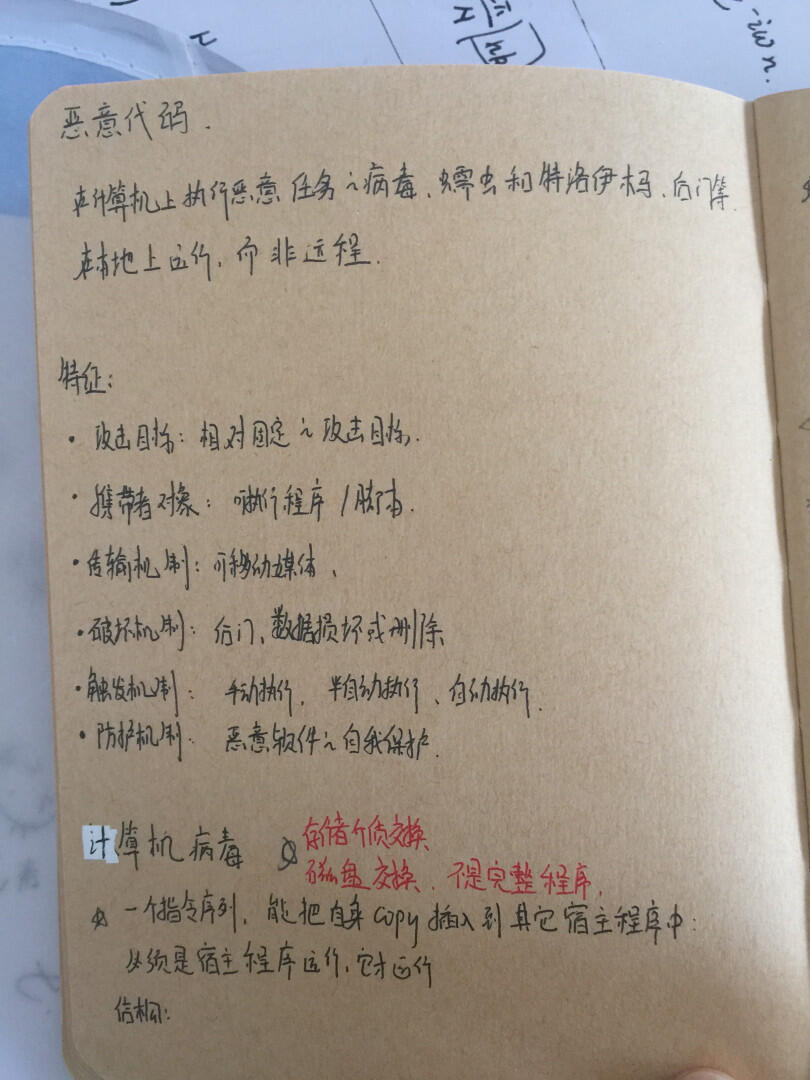 -iωn.
恶意代码.
在计算机上执行恶意任务的病毒、蠕虫和特洛伊木马、后门等.
在本地上运行,而非远程.
特征:
· 攻击目标: 相对固定的攻击目标.
· 携带者对象: 可执行程序/脚本.
· 传输机制: 可移动媒体、
· 破坏机制: 后门、数据损坏或删除
· 触发机制: 手动执行, 半自动执行、自动执行.
· 防护机制: 恶意软件的自我保护.
计算机病毒
存储介质交换
磁盘交换、不是完整程序,
一个指令序列, 能把自身copy插入到其它宿主程序中:
必须是宿主程序运行,它才运行